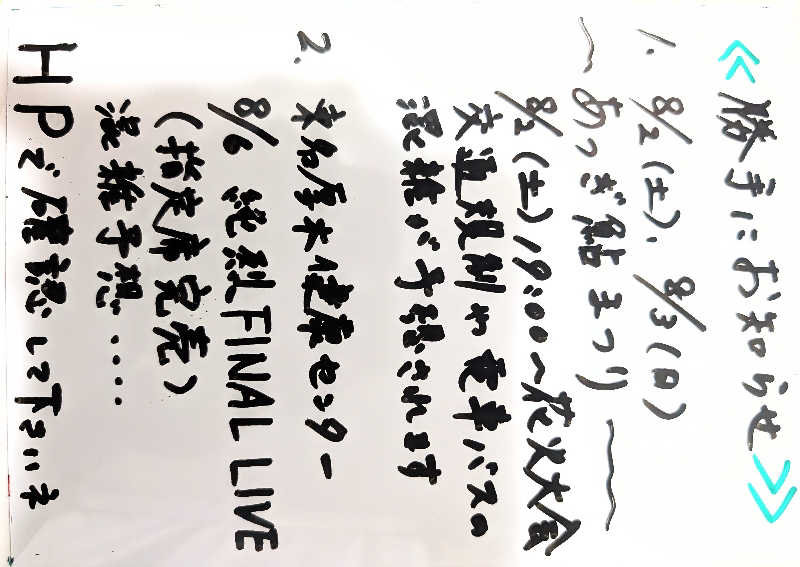 ≪勝手にお知らせ≫
1. 8/2(土)、8/3(日)
〜あつぎ鮎まつり〜
8/2(土)19:00〜花火大会
交通規制や電車バスの
混雑が予想されます
2. 東名厚木健康センター
8/6 純烈 FINAL LIVE
(指定席完売)
混雑予想‥‥
HPで確認して下さいネ